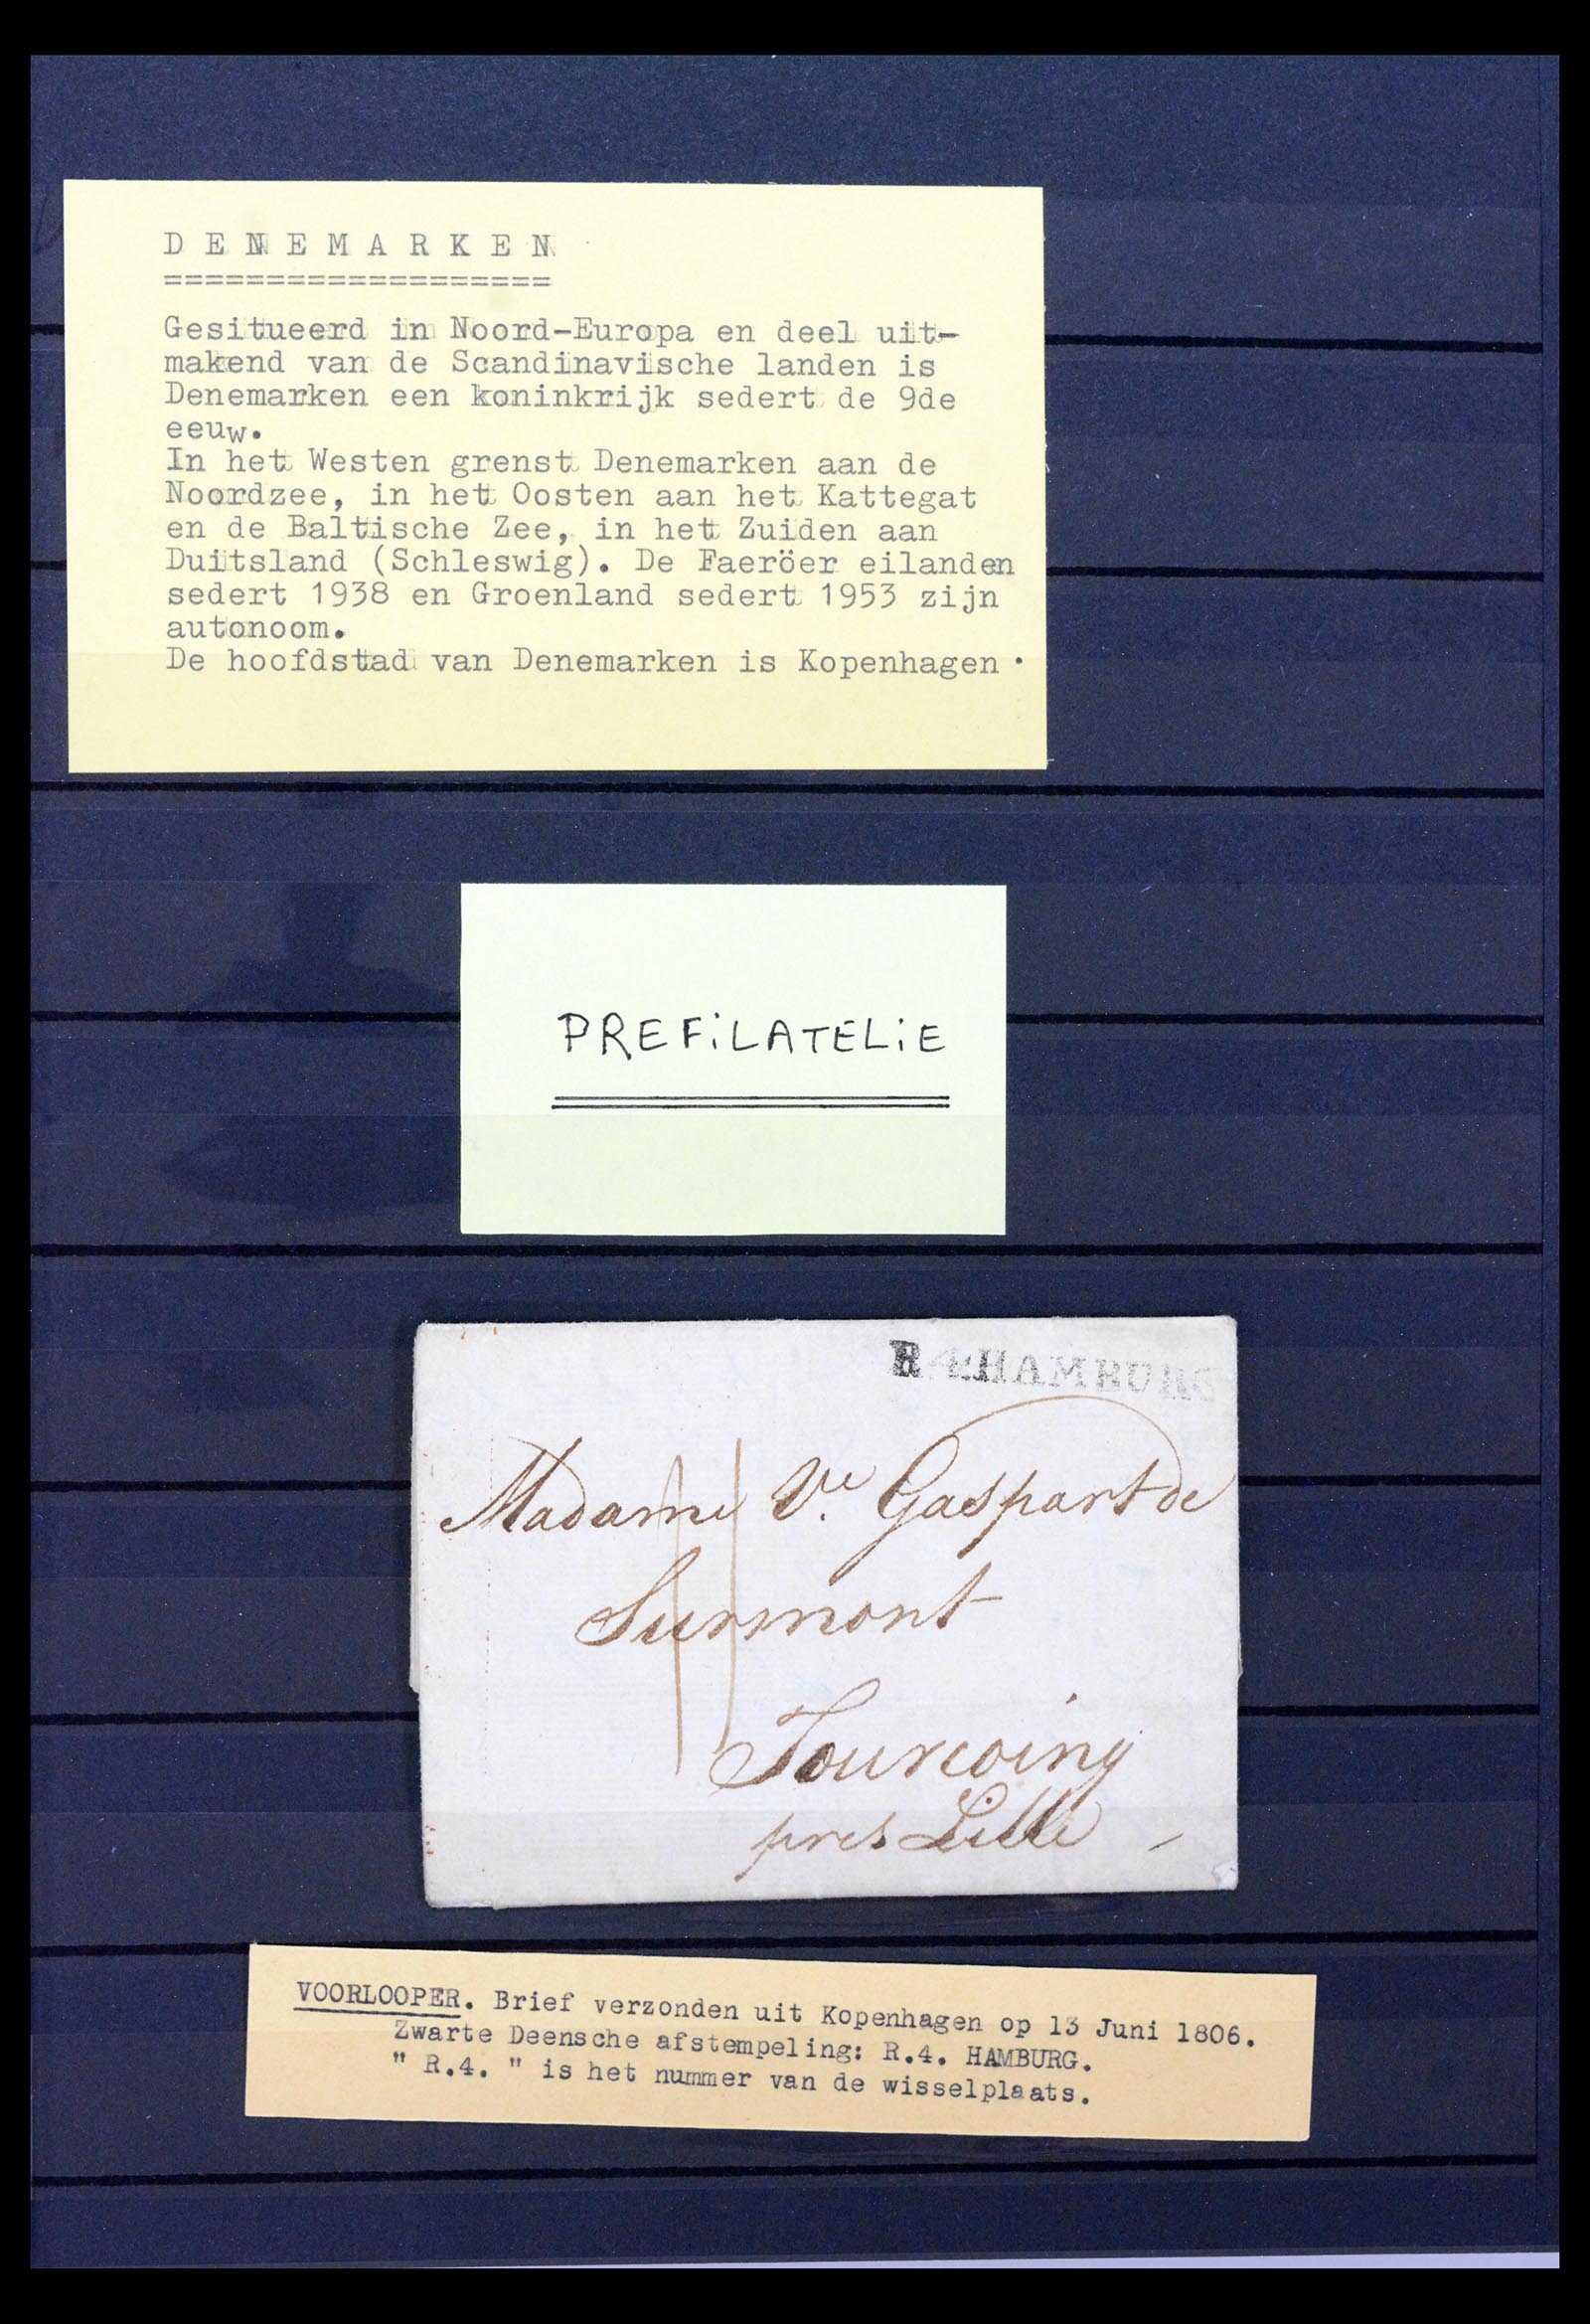 D E N E M A R K E N
===================
Gesitueerd in Noord-Europa en deel uit-
makend van de Scandinavische landen is
Denemarken een koninkrijk sedert de 9de
eeuw.
In het Westen grenst Denemarken aan de
Noordzee, in het Oosten aan het Kattegat
en de Baltische Zee, in het Zuiden aan
Duitsland (Schleswig). De Faeröer eilanden
sedert 1938 en Groenland sedert 1953 zijn
autonoom.
De hoofdstad van Denemarken is Kopenhagen.
PREFiLATELiE
R.4.HAMBURG
Madame Ve Gaspart de
Surmont
Tourcoing
pres Lille
VOORLOOPER. Brief verzonden uit Kopenhagen op 13 Juni 1806.
Zwarte Deensche afstempeling: R.4. HAMBURG.
" R.4. " is het nummer van de wisselplaats.